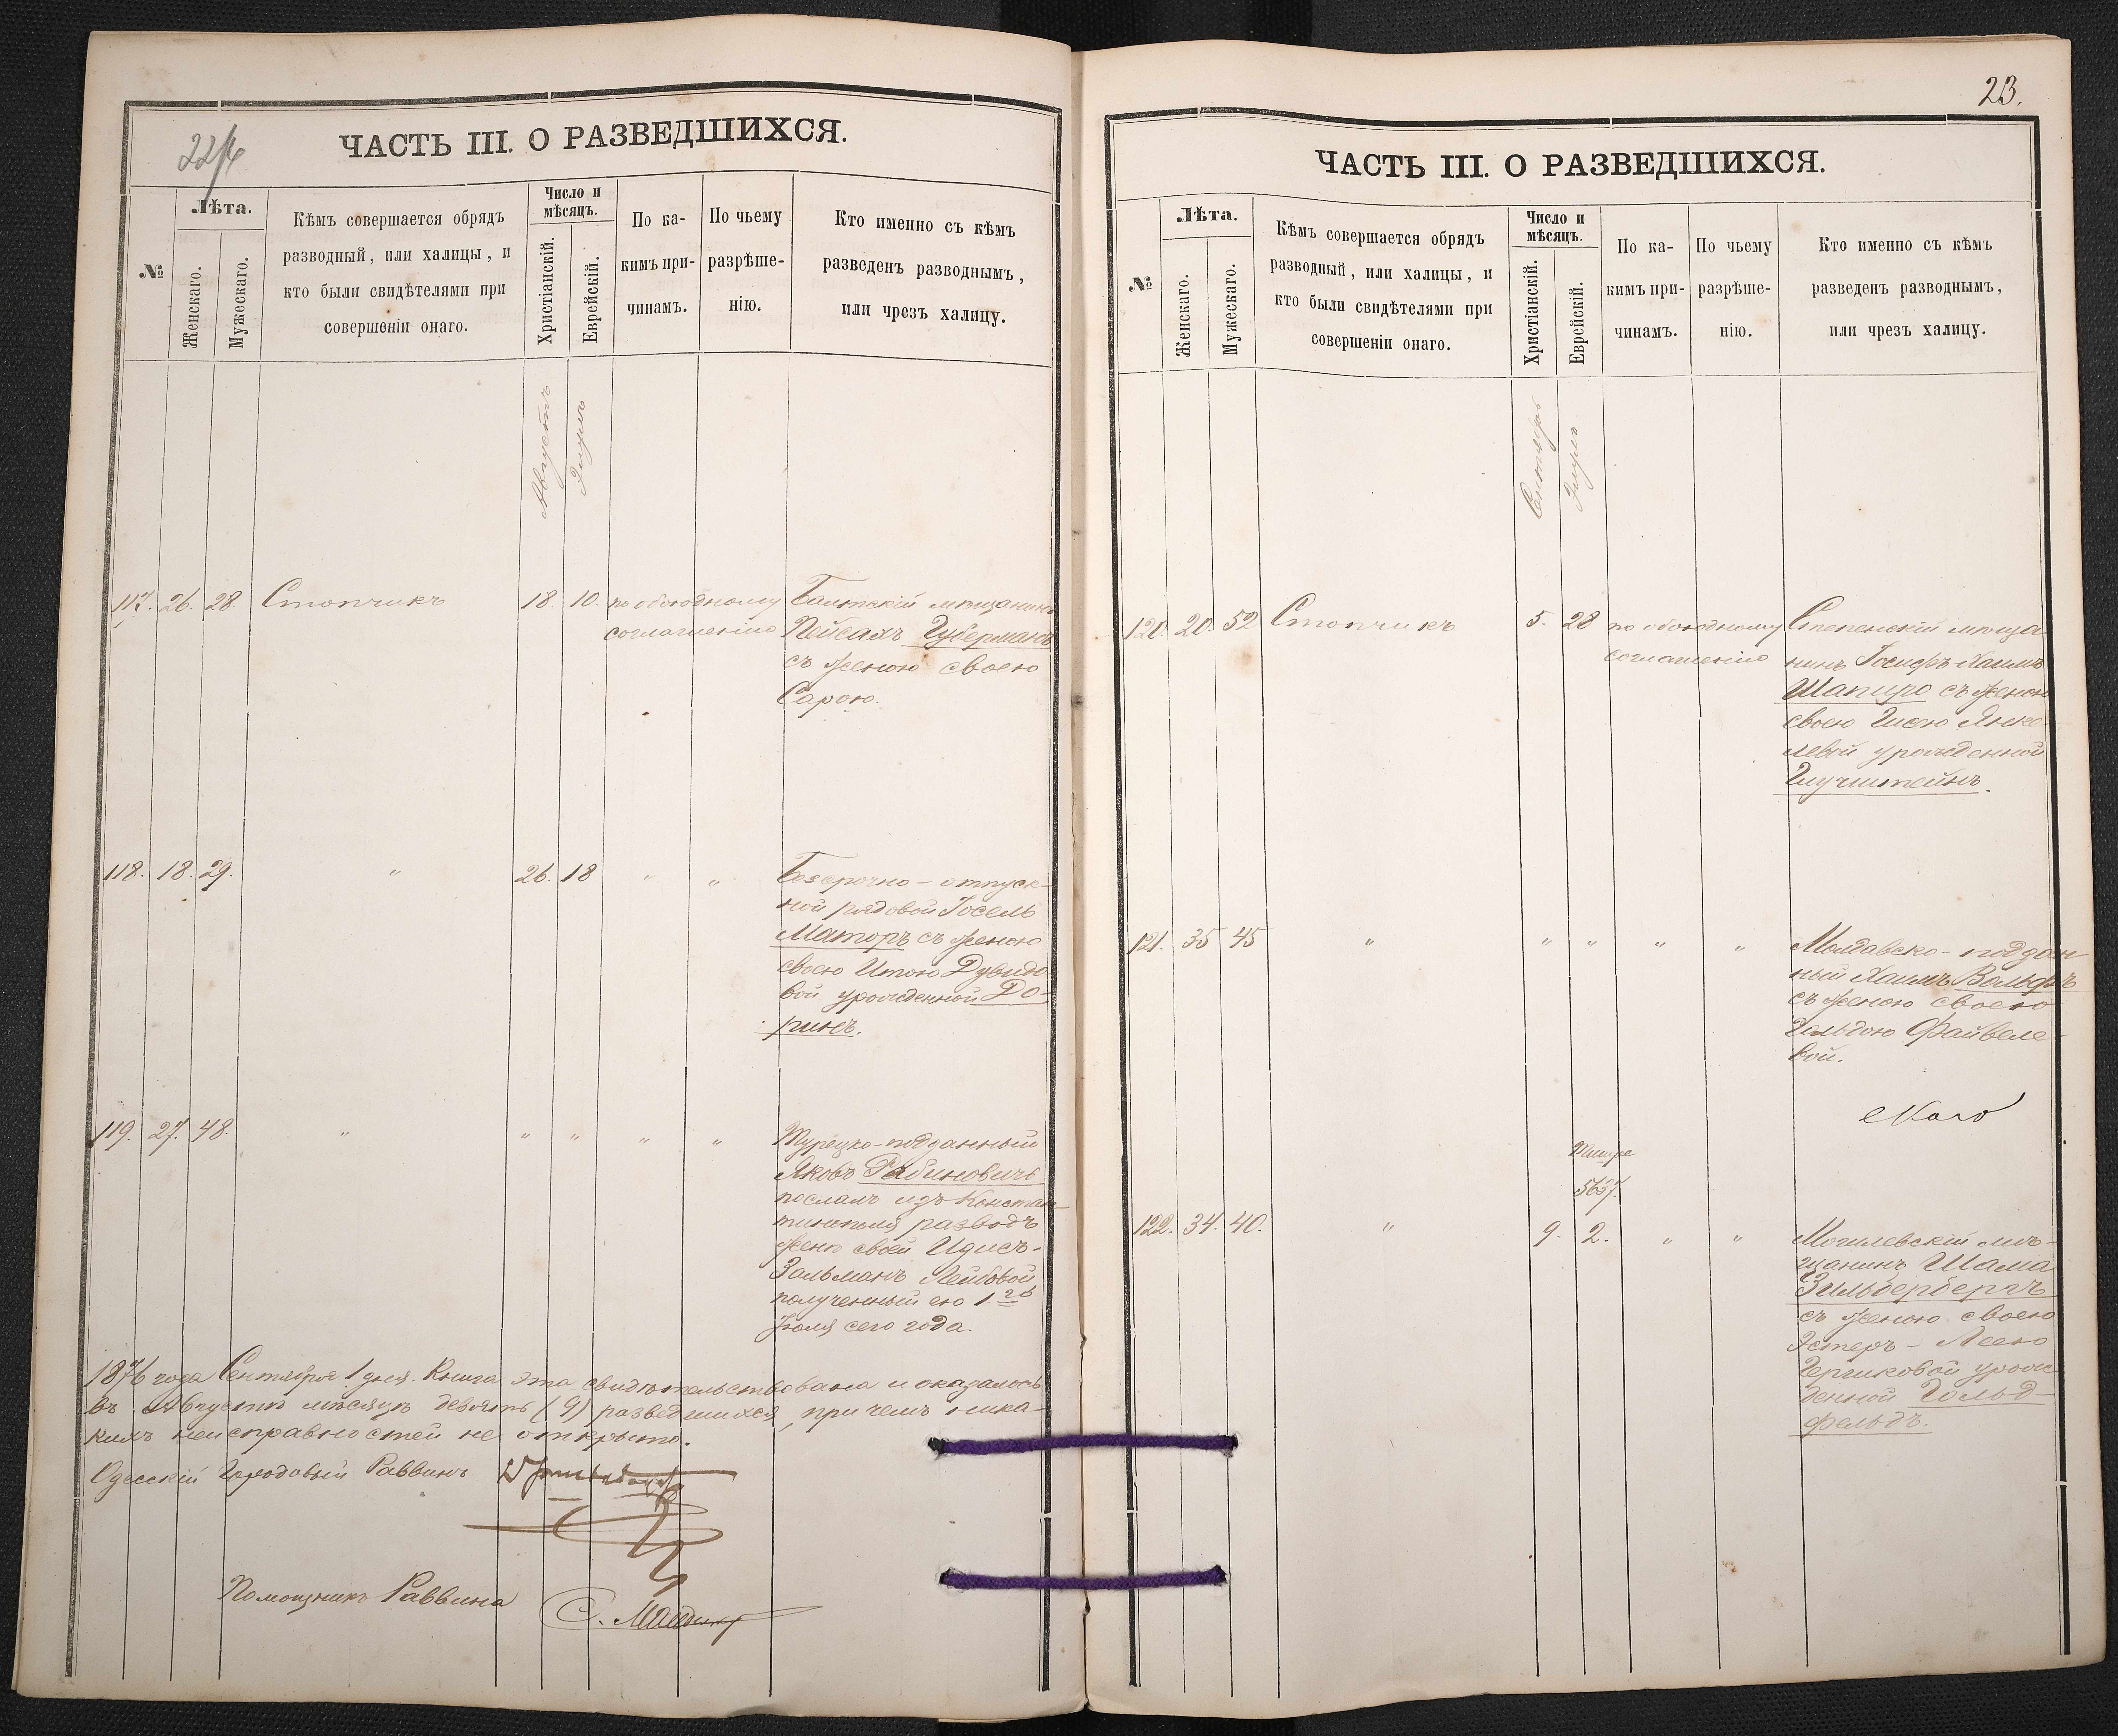 22/4
ЧАСТЬ III. О РАЗВЕДШИХСЯ.
№
Лѣта.
Женскаго.
Мужескаго.
Кѣмъ совершается обрядъ
разводный, или халицы, и
кто были свидѣтелями при
совершеніи онаго.
Число и
мѣсяцъ.
Христіанскій.
Еврейскій.
По ка-
кимъ при-
чинамъ.
По чьему
разрѣше-
нію.
Кто именно съ кѣмъ
разведенъ разводнымъ,
или чрезъ халицу.
Августъ
Элулъ
117. 26. 28. Стопчикъ 18. 10. по обоюдному
соглашенію
Балтскій мѣщанинъ
Пейсахъ Губерманъ
съ женою своею
Сарою.
118. 18. 29. " 26. 18 " "
Безсрочно-отпуск-
ной рядовой Іосель
Маторъ съ женою
своею Итою Дувидо-
вой урожденной До-
ринъ.
119. 27. 48. " " " " "
Турецко-подданный
Яковъ Рабиновичъ
послалъ изъ Констан-
тинополя разводъ
женѣ своей Идисъ-
Зальманъ Лейбовой
полученный ею 1го
Іюля сего года.
1876 года Сентября 1 дня. Книга эта свидѣтельствована и оказалось
въ Августѣ мѣсяцѣ девять (9) разведшихся, при чемъ ника-
кихъ неисправностей не открыто.
Одесскій Городовый Раввинъ
Помощникъ Раввина
С.
23.
ЧАСТЬ III. О РАЗВЕДШИХСЯ.
№
Лѣта.
Женскаго.
Мужескаго.
Кѣмъ совершается обрядъ
разводный, или халицы, и
кто были свидѣтелями при
совершеніи онаго.
Число и
мѣсяцъ.
Христіанскій.
Еврейскій.
По ка-
кимъ при-
чинамъ.
По чьему
разрѣше-
нію.
Кто именно съ кѣмъ
разведенъ разводнымъ,
или чрезъ халицу.
Сентябрь
Элулъ
120. 20. 52 Стопчикъ 5. 28 по обоюдному
соглашенію
Степенскій мѣща-
нинъ Іосифъ Хаимъ
Шапиро съ женою
своею Гисею Янке-
левой урожденной
Глузштейнъ.
121. 35 45 " " " " "
Молдавско-поддан-
ный Хаимъ Вольфъ
съ женою своею
Гольдою Файвеле-
вой.
Тишре
5637.
122. 34. 40. " 9. 2. " "
Могилевскій мѣ-
щанинъ Шама
Зильберберъ
съ женою своею
Эстеръ-Леею
Гершковой урож-
денной Гольд-
фельдъ.